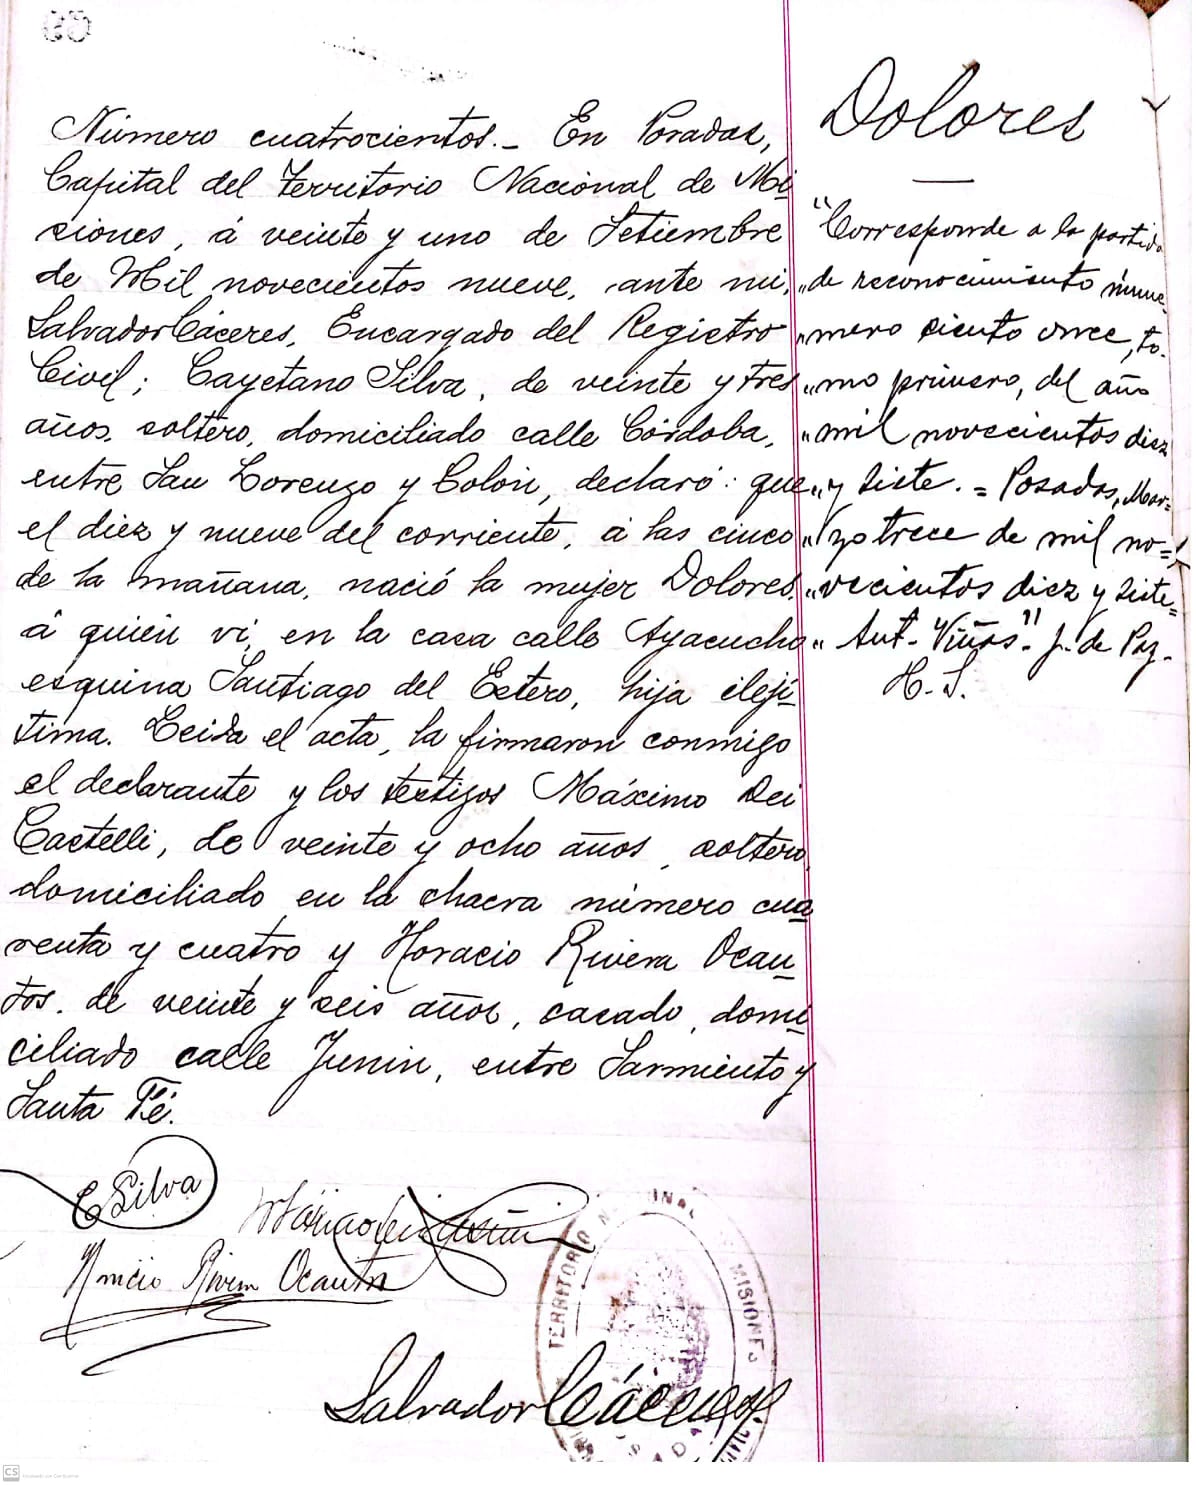 Número cuatrocientos._ En Posadas,
Capital del Territorio Nacional de Mi
siones, á veinte y uno de Setiembre
de Mil novecientos nueve, ante mi,
Salvador Cáceres, Encargado del Registro
Civil; Cayetano Silva, de veinte y tres
años, soltero, domiciliado calle Córdoba,
entre San Lorenzo y Colón, declaró: que
el diez y nueve del corriente, á las cinco
de la mañana, nació la mujer Dolores,
á quien vi, en la casa calle Ayacucho
esquina Santiago del Estero, hija ileji
tima. Leida el acta, la firmaron conmigo
el declarante y los testigos Máximo Dei
Castelli, de veinte y ocho años, soltero,
domiciliado en la chacra número cua
renta y cuatro y Horacio Rivera Ocan
tos, de veinte y seis años, casado, domi
ciliado calle Junin, entre Sarmiento y
Santa Fé.
C Silva
Rivera Ocantos
Salvador Cáceres
TERRITORIO NACIONAL MISIONES
Dolores
"Corresponde a la partida
" de reconocimiento núme-
" mero ciento once, to-
" mo primero, del año
" mil novecientos diez
" y siete. = Posadas, Mar=
" zo trece de mil no=
" vecientos diez y siete=
" Ant. Viñas". J. de Paz.
H. S.
CS